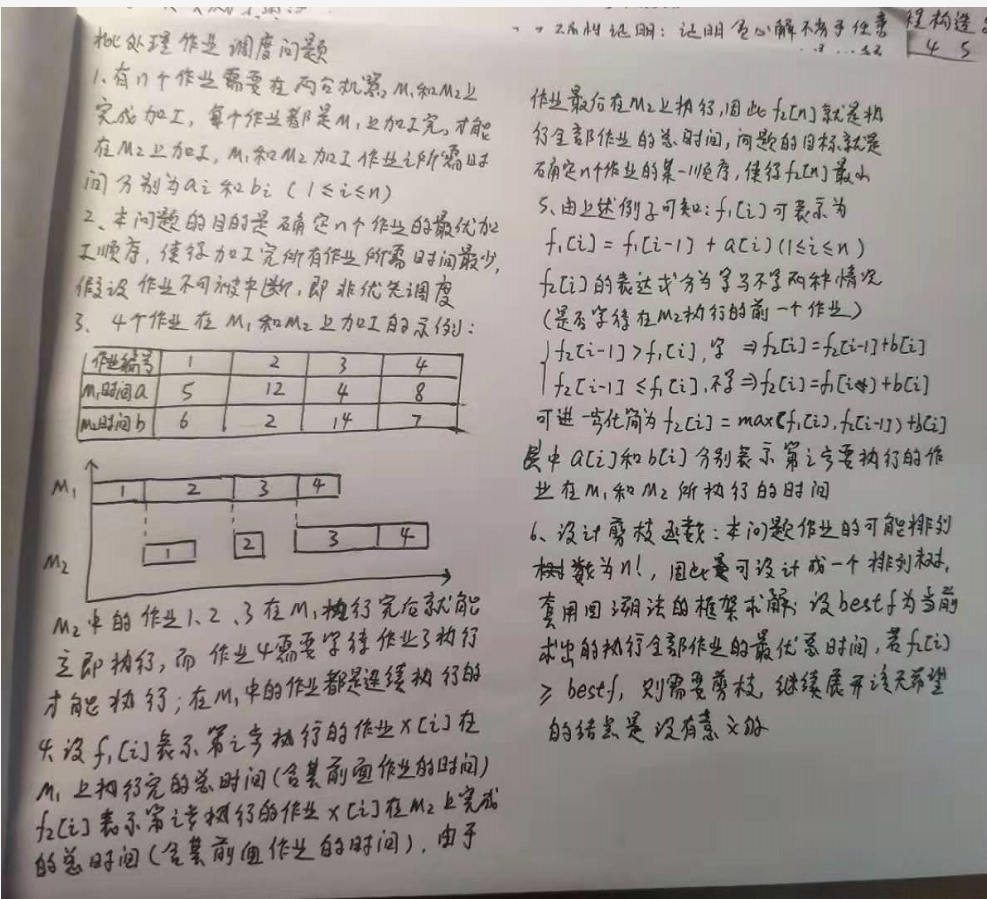 批处理作业调度问题
1、有n个作业需要在两台机器M₁和M₂上
完成加工,每个作业都是M₁上加工完,才能
在M₂上加工,M₁和M₂加工作业i所需时
间分别为ai和bi(1≤i≤n)
2、本问题的目的是确定n个作业的最优加
工顺序,使得加工完所有作业所需时间最少,
假设作业不可被中断,即非优先调度
3、4个作业在M₁和M₂上加工的示例:
作业编号 1 2 3 4
M₁时间a 5 12 4 8
M₂时间b 6 2 14 7
M₁ 1 2 3 4
M₂ 1 2 3 4
M₂中的作业1、2、3在M₁执行完后就能
立即执行,而作业4需要等待作业3执行
才能执行;在M₁中的作业都是连续执行的
4、设f₁[i]表示第i步执行的作业x[i]在
M₁上执行完的总时间(含其前面作业的时间)
f₂[i]表示第i步执行的作业x[i]在M₂上完成
的总时间(含其前面作业的时间),由于
证明:证明贪心解不劣于任意
程构造
4 5
作业最后在M₂上执行,因此f₂[n]就是执
行全部作业的总时间,问题的目标就是
确定n个作业的某一顺序,使得f₂[n]最小
5、由上述例子可知:f₁[i]可表示为
f₁[i]=f₁[i-1]+a[i](1≤i≤n)
f₂[i]的表达式分为等与不等两种情况
(是否等待在M₂执行的前一个作业)
f₂[i-1]>f₁[i],等⇒f₂[i]=f₂[i-1]+b[i]
f₂[i-1]≤f₁[i],不等⇒f₂[i]=f₁[i]+b[i]
可进一步化简为f₂[i]=max(f₁[i),f₂[i-1])+b[i]
其中a[i]和b[i]分别表示第i步要执行的作
业在M₁和M₂所执行的时间
6、设计剪枝函数:本问题作业的可能排列
数为n!,因此可设计成一个排列树,
套用回溯法的框架求解,设bestf为当前
求出的执行全部作业的最优总时间,若f₂[i]
≥bestf,则需要剪枝,继续展开该无希望
的结点是没有意义的